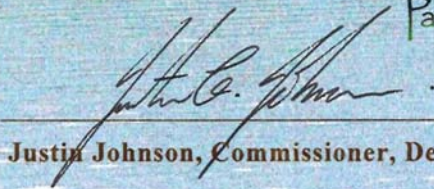 Pa
Justin C. Johnson
Justin Johnson, Commissioner, De